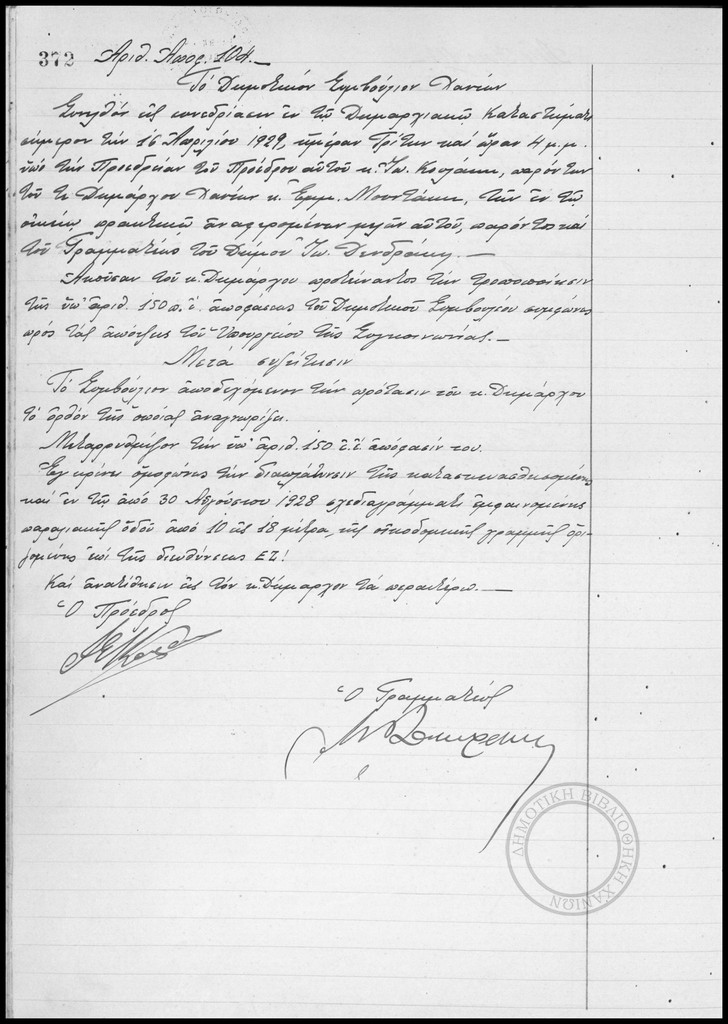 372 Αριθ. Αποφ. 104.—
Τό Δημοτικόν Συμβούλιον Χανίων
Συνελθόν εἰς συνεδρίασιν ἐν τῷ Δημαρχιακῷ Καταστήματι
σήμερον τήν 16 Ἀπριλίου 1929, ἡμέραν Τρίτην καί ὥραν 4 μ.μ.
ὑπό τήν Προεδρείαν τοῦ Προέδρου αὐτοῦ κ. Ἰω. παρόντων
τοῦ κ. Δημάρχου Χανίων κ. Ἐμμ. Μουντάκη, τῶν ἐν τῷ
οἰκείῳ πρακτικῷ ἀναφερομένων μελῶν αὐτοῦ, παρόντος καί
τοῦ Γραμματέως τοῦ Δήμου Ἰω. Δενδράκη.—
Ἀκοῦσαν τοῦ κ. Δημάρχου προτείναντος τήν τροποποίησιν
τῆς ὑπ' ἀριθ. 150 ἀποφάσεως τοῦ Δημοτικοῦ Συμβουλίου συμφώνως
πρός τάς ἀπόψεις τοῦ Ὑπουργείου τῆς Συγκοινωνίας.—
Μετά συζήτησιν
Τό Συμβούλιον ἀποδεχόμενον τήν πρότασιν τοῦ κ. Δημάρχου
τό ὀρθόν τῆς ὁποίας ἀναγνωρίζει.
Μεταρρυθμίζον τήν ὑπ' ἀριθ. 150 ἀπόφασίν του.
Ἐγκρίνει ὁμοφώνως τήν διαπλάτυνσιν τῆς κατασκευασθησομένης
καί ἐν τῷ ἀπό 30 Αὐγούστου 1928 σχεδιαγράμματι ἐμφαινομένης
παραλιακῆς ὁδοῦ ἀπό 10 εἰς 18 μέτρα, τῆς οἰκοδομικῆς γραμμῆς ὁρι-
ζομένης ἐπί τῆς διευθύνσεως ΕΖ!
Καί ἀνατίθησιν εἰς τόν κ. Δήμαρχον τά περαιτέρω.—
Ὁ Πρόεδρος
Ὁ Γραμματεύς
ΔΗΜΟΤΙΚΗ ΒΙΒΛΙΟΘΗΚΗ ΧΑΝΙΩΝ